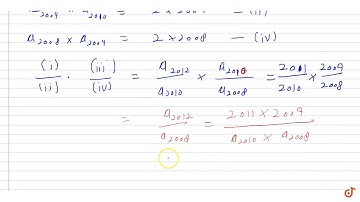 a₂₀₀₉ × a₂₀₁₀ = 2 × 2009 — (iii)
a₂₀₀₈ × a₂₀₀₉ = 2 × 2008 — (iv)
(i)/(ii) · (iii)/(iv) = a₂₀₁₂/a₂₀₁₀ × a₂₀₁₀/a₂₀₀₈ = 2011/2010 × 2009/2008
= a₂₀₁₂/a₂₀₀₈ = 2011 × 2009/a₂₀₁₀ × a₂₀₀₈